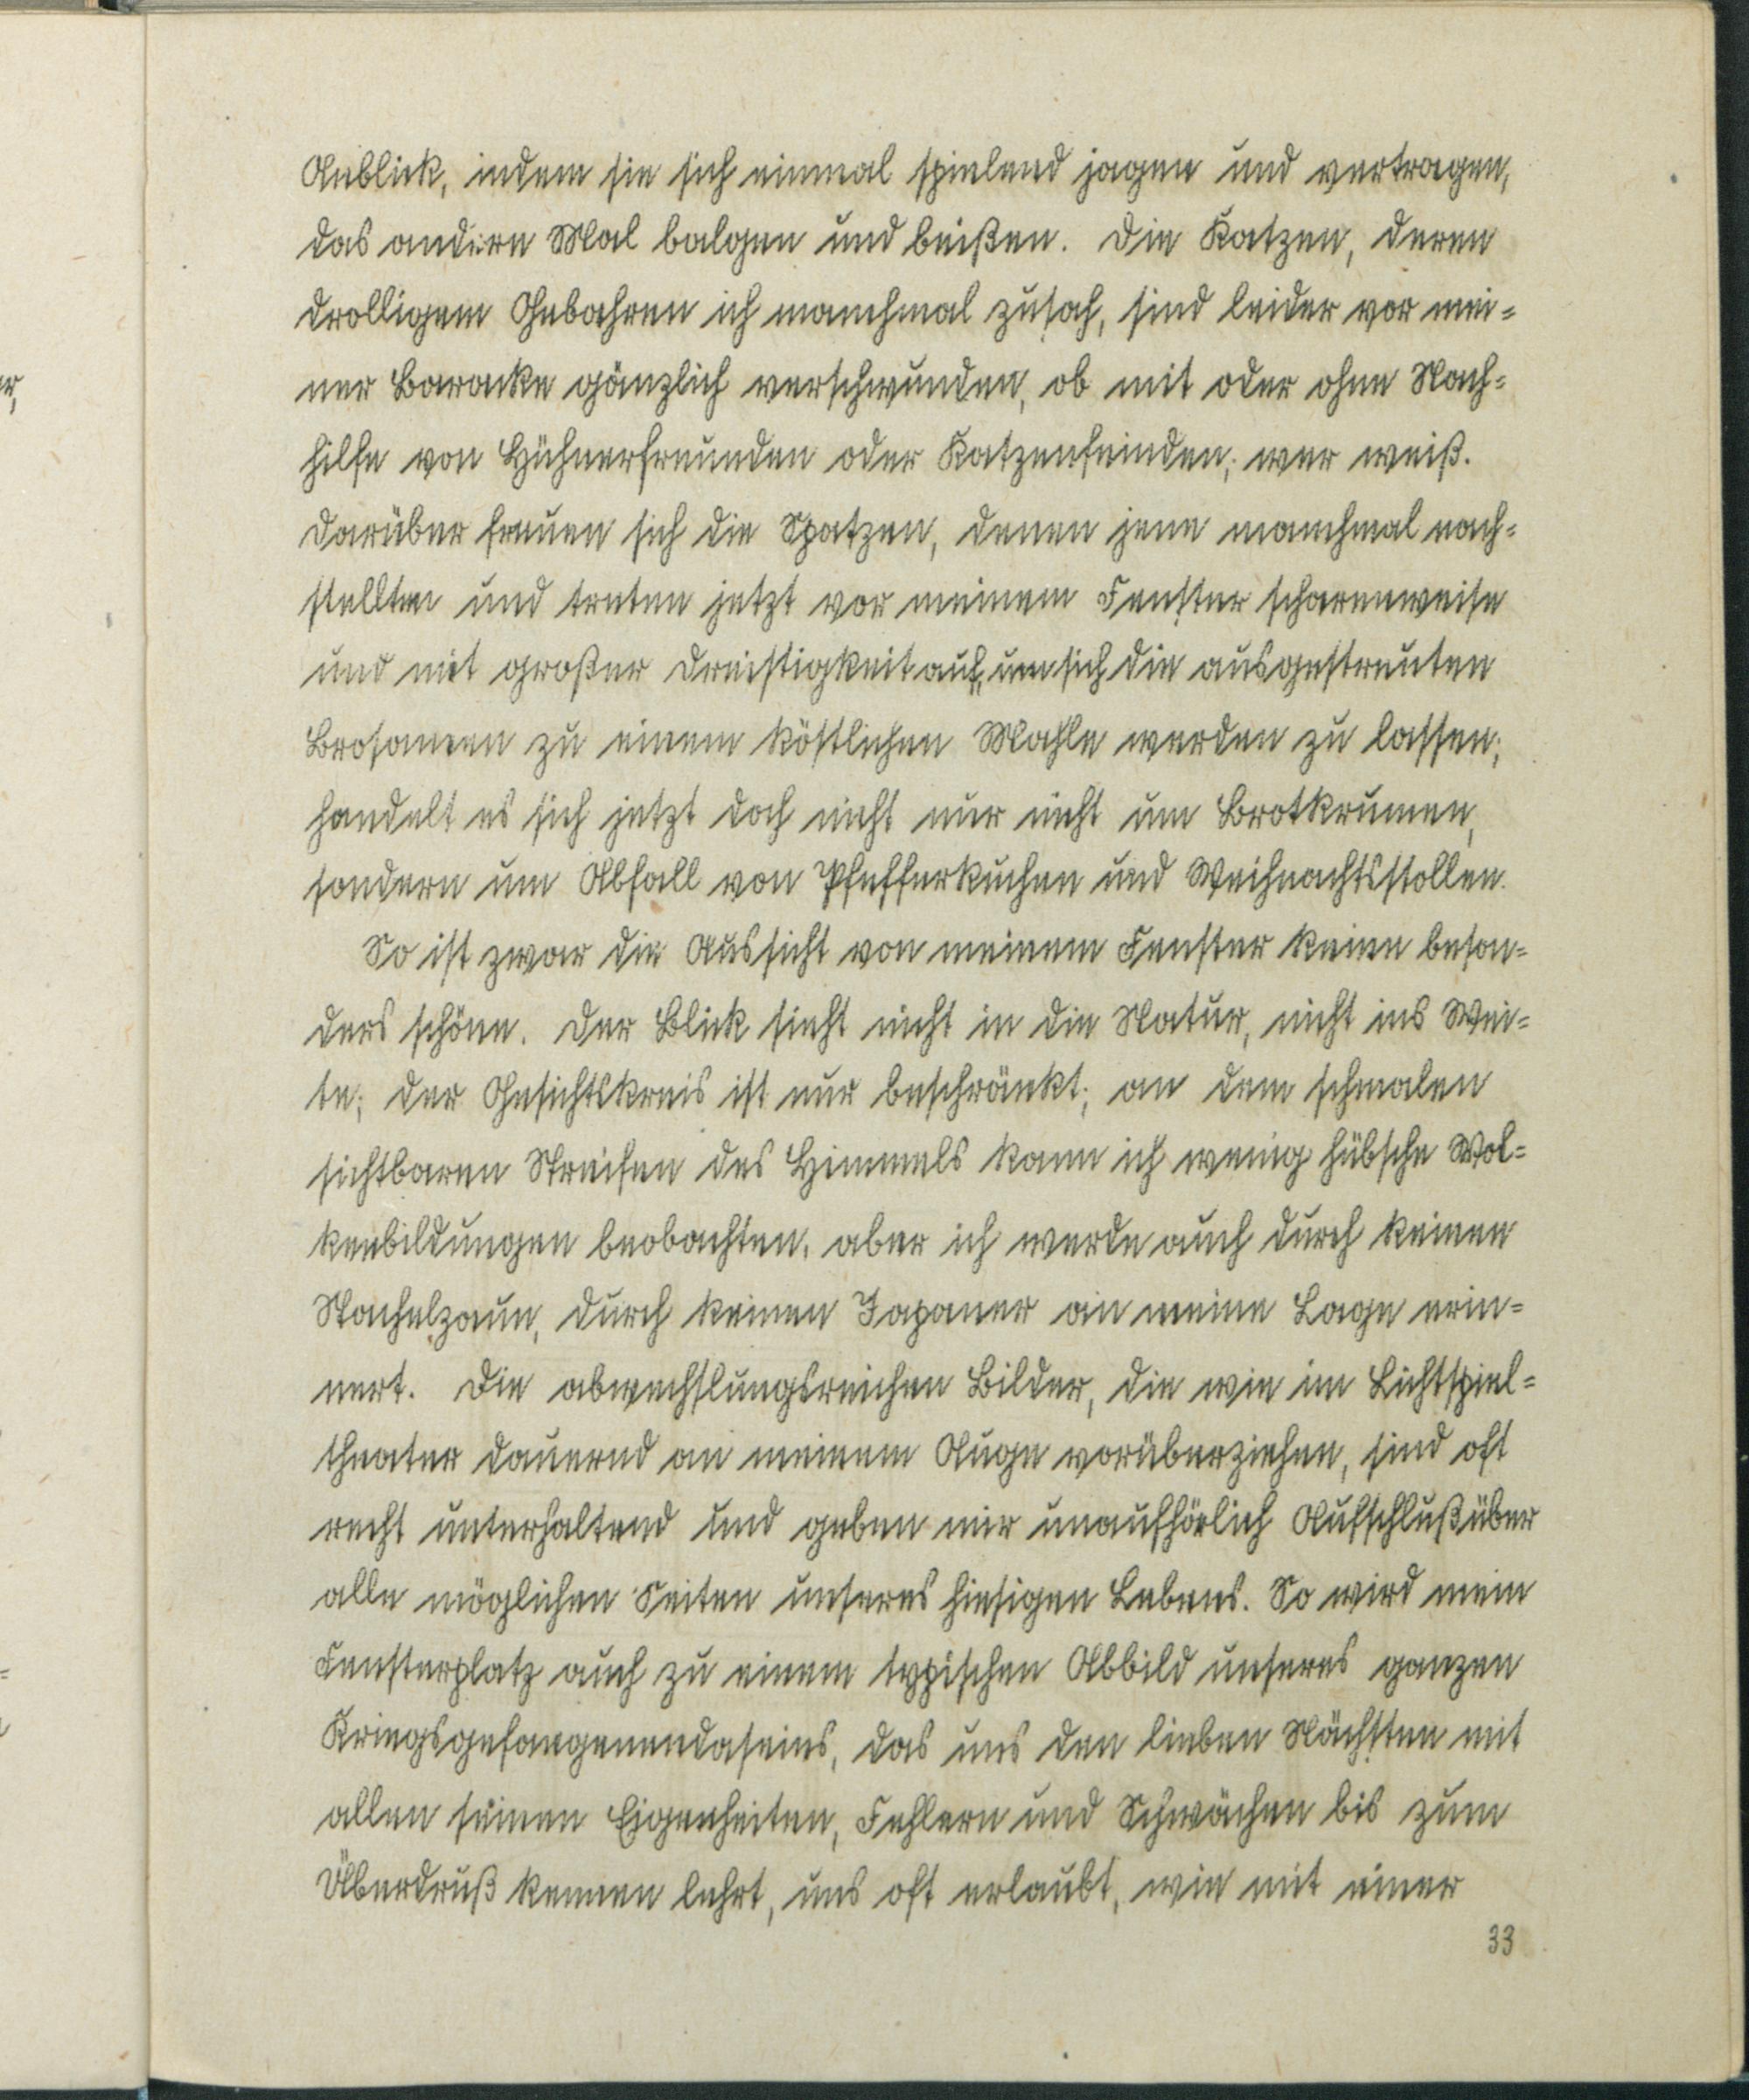 Anblick, indem sie sich einmal spielend jagen und vertragen,
das andere Mal balgen und beißen. Die Katzen, deren
drolligem Gebahren ich manchmal zusah, sind leider vor mei-
ner Baracke gänzlich verschwunden, ob mit oder ohne Nach-
hilfe von Hühnerfreunden oder Katzenfeinden; wer weiß.
Darüber freuen sich die Spatzen, denen jene manchmal nach-
stellten und treten jetzt vor meinem Fenster scharenweise
und mit großer Dreistigkeit auf, um sich die ausgestreuten
Brosamen zu einem köstlichen Mahle werden zu lassen;
handelt es sich jetzt doch nicht nur nicht um Brotkrumen,
sondern um Abfall von Pfefferkuchen und Weihnachtsstollen.
So ist zwar die Aussicht von meinem Fenster keine beson-
ders schöne. Der Blick sieht nicht in die Natur, nicht ins Wei-
te; der Gesichtskreis ist nur beschränkt; an dem schmalen
sichtbaren Streifen des Himmels kann ich wenig hübsche Wol-
kenbildungen beobachten, aber ich werde auch durch keinen
Stachelzaun, durch keinen Japaner an meine Lage erin-
nert. Die abwechslungsreichen Bilder, die wie im Lichtspiel-
theater dauernd an meinem Auge vorüberziehen, sind oft
recht unterhaltend und geben mir unaufhörlich Aufschluß über
alle möglichen Seiten unseres hiesigen Lebens. So wird mein
Fensterplatz auch zu einem typischen Abbild unseres ganzen
Kriegsgefangenendaseins, das uns den lieben Nächsten mit
allen seinen Eigenheiten, Fehlern und Schwächen bis zum
Überdruß kennen lehrt, uns oft erlaubt, wie mit einer
33